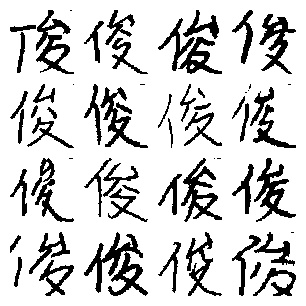 俊俊俊俊
俊俊俊俊
俊俊俊俊
俊俊俊俊